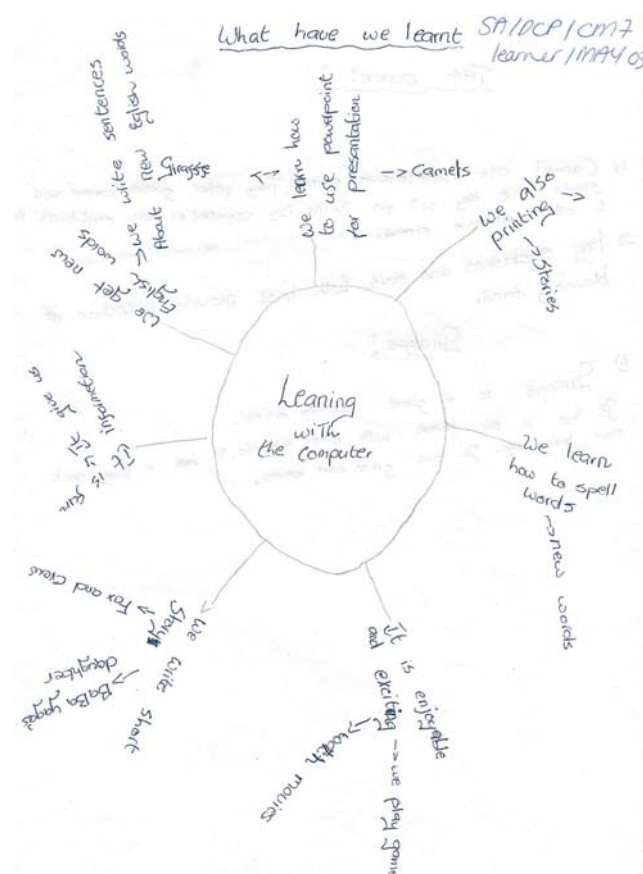 What have we learnt
SA/DCP/CM7
learner/MAY 03
Leaning
with
the computer
We learn how
to use powerpoint
for presantation
→ Camels
→ Giraffe
We also
printing →
→ Stories
We learn
how to spell
words
→ new words
It is enjoyable
and exciting → we play game
→ watch movies
We write short
Story
→ Fox and Crow
→ BaBa yaga's
daughter
It is fun
→ It give us
information
We get new
English words
→ We write sentences
About new Eglish words